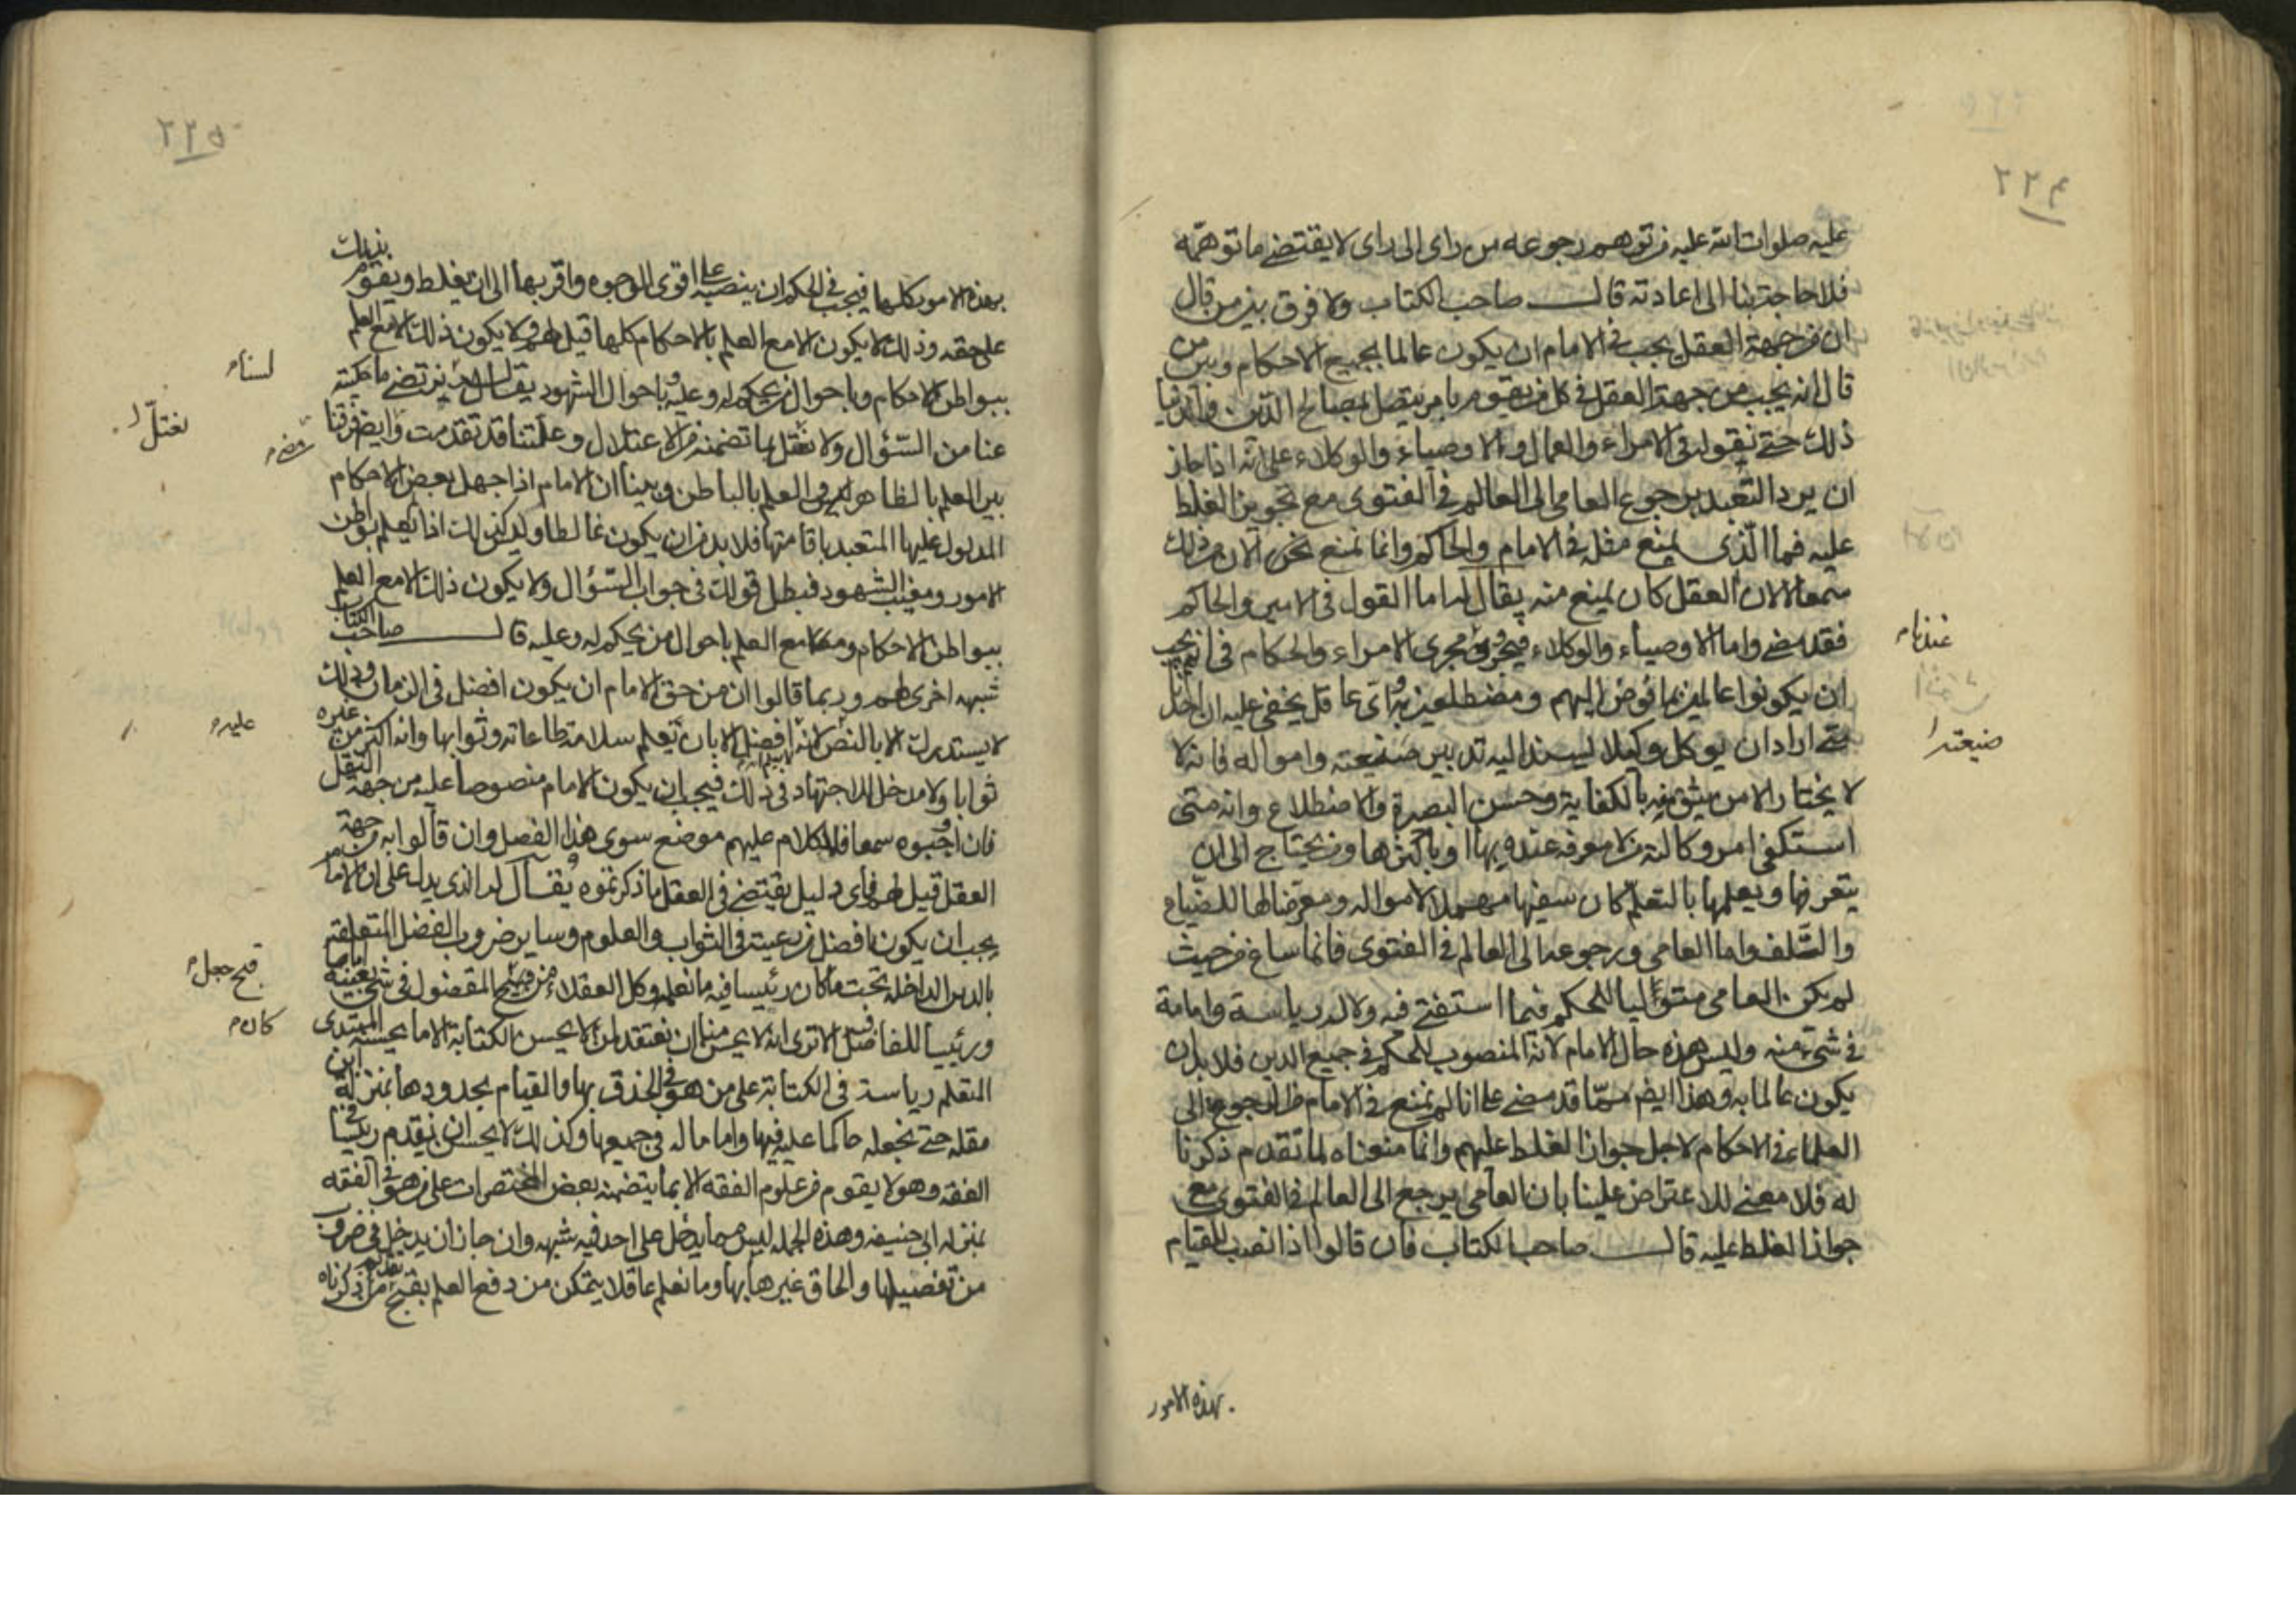 ٢٢٤
عليه صلوات الله عليه من توهم رجوعه من راى الى راى لا يقتضے ما توهمه
فلا حاجة بنا الى اعادته قال صاحب الكتاب ولا فرق بين من قال
ان من جهة العقل يجب فى الامام ان يكون عالما بجميع الاحكام وبين من
قال انه يجب من جهة العقل فى كل من يقوم بامر يتصل بمصالح الدين والدنيا
ذلك حتے نقوله فى الامراء والعمال والاوصياء والوكلاء على انه اذا جاز
ان يرد التعبد برجوع العامى الى العالم فى الفتوى مع تجويز الغلط
عليه فما الذى يمنع مثله فى الامام والحاكم وانما نمنع نحن الان من ذلك
سمعا لا لان العقل كان يمنع منه يقال له اما القول فى الامير والحاكم
فقد مضے واما الاوصياء والوكلاء فيجرى مجرى الامراء والحكام فى انه يجب
ان يكونوا عالمين بما فوض اليهم ومضطلعين به واى عاقل يخفى عليه ان احدنا
متے اراد ان يوكل وكيلا ليسند اليه تدبير ضيعته وامواله فانه لا
لا يختار الا من يثق منه بالكفاية وحسن البصيرة والاضطلاع وانه متى
استكفى امر وكالته من لا معرفة عنده بها او باكثرها ومن يحتاج الى ان
يتعرفها ويعلمها بالتعلم كان سفيها مهملا لامواله ومعرضا لها للضياع
والتلف واما العامى ورجوعه الى العالم فى الفتوى فانما ساغ من حيث
لم يكن العامى متوليا للحكم فيما استفتے فيه ولا له رياسة وامامة
فى شئ منه وليس هذه حال الامام لانه المنصوب للحكم فى جميع الدين فلا بد ان
يكون عالما به وهذا ايضا مما قد مضے على انا لم نمنع فى الامام من الرجوع الى
العلماء فى الاحكام لاجل جواز الغلط عليهم وانما منعناه لما تقدم ذكرنا
له فلا معنے للاعتراض علينا بان العامى يرجع الى العالم فى الفتوى مع
جواز الغلط عليه قال صاحب الكتاب فان قالوا اذا نصب للقيام
عندنا م
ضيعته ا
بهذه الامور
٢٢٥
بهذه الامور كلها فيجب فى الحكم ان ينصبه على اقوى الوجوه واقربها الى ان يغلط ويقوم بذلك
على حقه وذلك لا يكون الا مع العلم بالاحكام كلها قيل لهم ولا يكون ذلك الا مع العلم
ببواطن الاحكام وباحوال من يحكم له وعليه وباحوال الشهود يقال له نرتضے ما حكيته
عنا من السؤال ولا نعتل بما تضمنه من الاعتلال وعلتنا قد تقدمت وايضا فرقنا
بين العلم بالظاهر وبين العلم بالباطن وبينا ان الامام اذا جهل بعض الاحكام
المدلول عليها المتعبد باقامتها فلا بد من ان يكون غالطا وليس كذلك اذا لم يعلم بواطن
الامور ومغيب الشهود فبطل قولك فى جواب السؤال ولا يكون ذلك الا مع العلم
ببواطن الاحكام ومع العلم باحوال من يحكم له وعليه قال صاحب الكتاب
شبهة اخرى لهم وربما قالوا ان من حق الامام ان يكون افضل فى الزمان وذلك
لا يستدرك الا بالنص لانه افضل الا بان تعلم سلامة طاعاته وثوابها وانه اكثر من غيره
ثوابا ولا مدخل للاجتهاد فى ذلك فيجب ان يكون الامام منصوصا عليه من جهة النقل
فان اوجبوه سمعا فللكلام عليهم موضع سوى هذا الفصل وان قالوا به من جهة
العقل قيل لهم فاى دليل يقتضے فى العقل ما ذكرتموه يقال له الذى يدل على ان الامام
يجب ان يكون افضل من رعيته فى الثواب والعلوم وساير ضروب الفضل المتعلقة
بالدين الداخلة تحت ما كان رئيسا فيه ما نعلمه وكل العقلاء من قبح المفضول فى شئ بعينه اماما
ورئيسا للفاضل فيه الا ترى انه لا يحسن منا ان نعتقد لمن لا يحسن الكتابة الا ما يحسنه المبتدى
المتعلم رياسة فى الكتابة على من هو فى الحذق بها والقيام بحدودها بمنزلة ابن
مقلة حتے نجعله حاكما عليه فيها واماما له فى جميعها وكذلك لا يحسن ان نقدم رئيسا فى
الفقه وهو لا يقوم من علوم الفقه الا بما يتضمنه بعض المختصرات على من هو فى الفقه
بمنزلة ابى حنيفة وهذه الجملة ليس مما يدخل على احد فيه شبهة وان جاز ان يدخل فى ضروب
من تفصيلها والحاق غيرها بها وما نعلم عاقلا يتمكن من دفع العلم بقبح تقديم من ذكرناه
لسناه
نعتل ا
عليه م
قبح جعل م
كان م